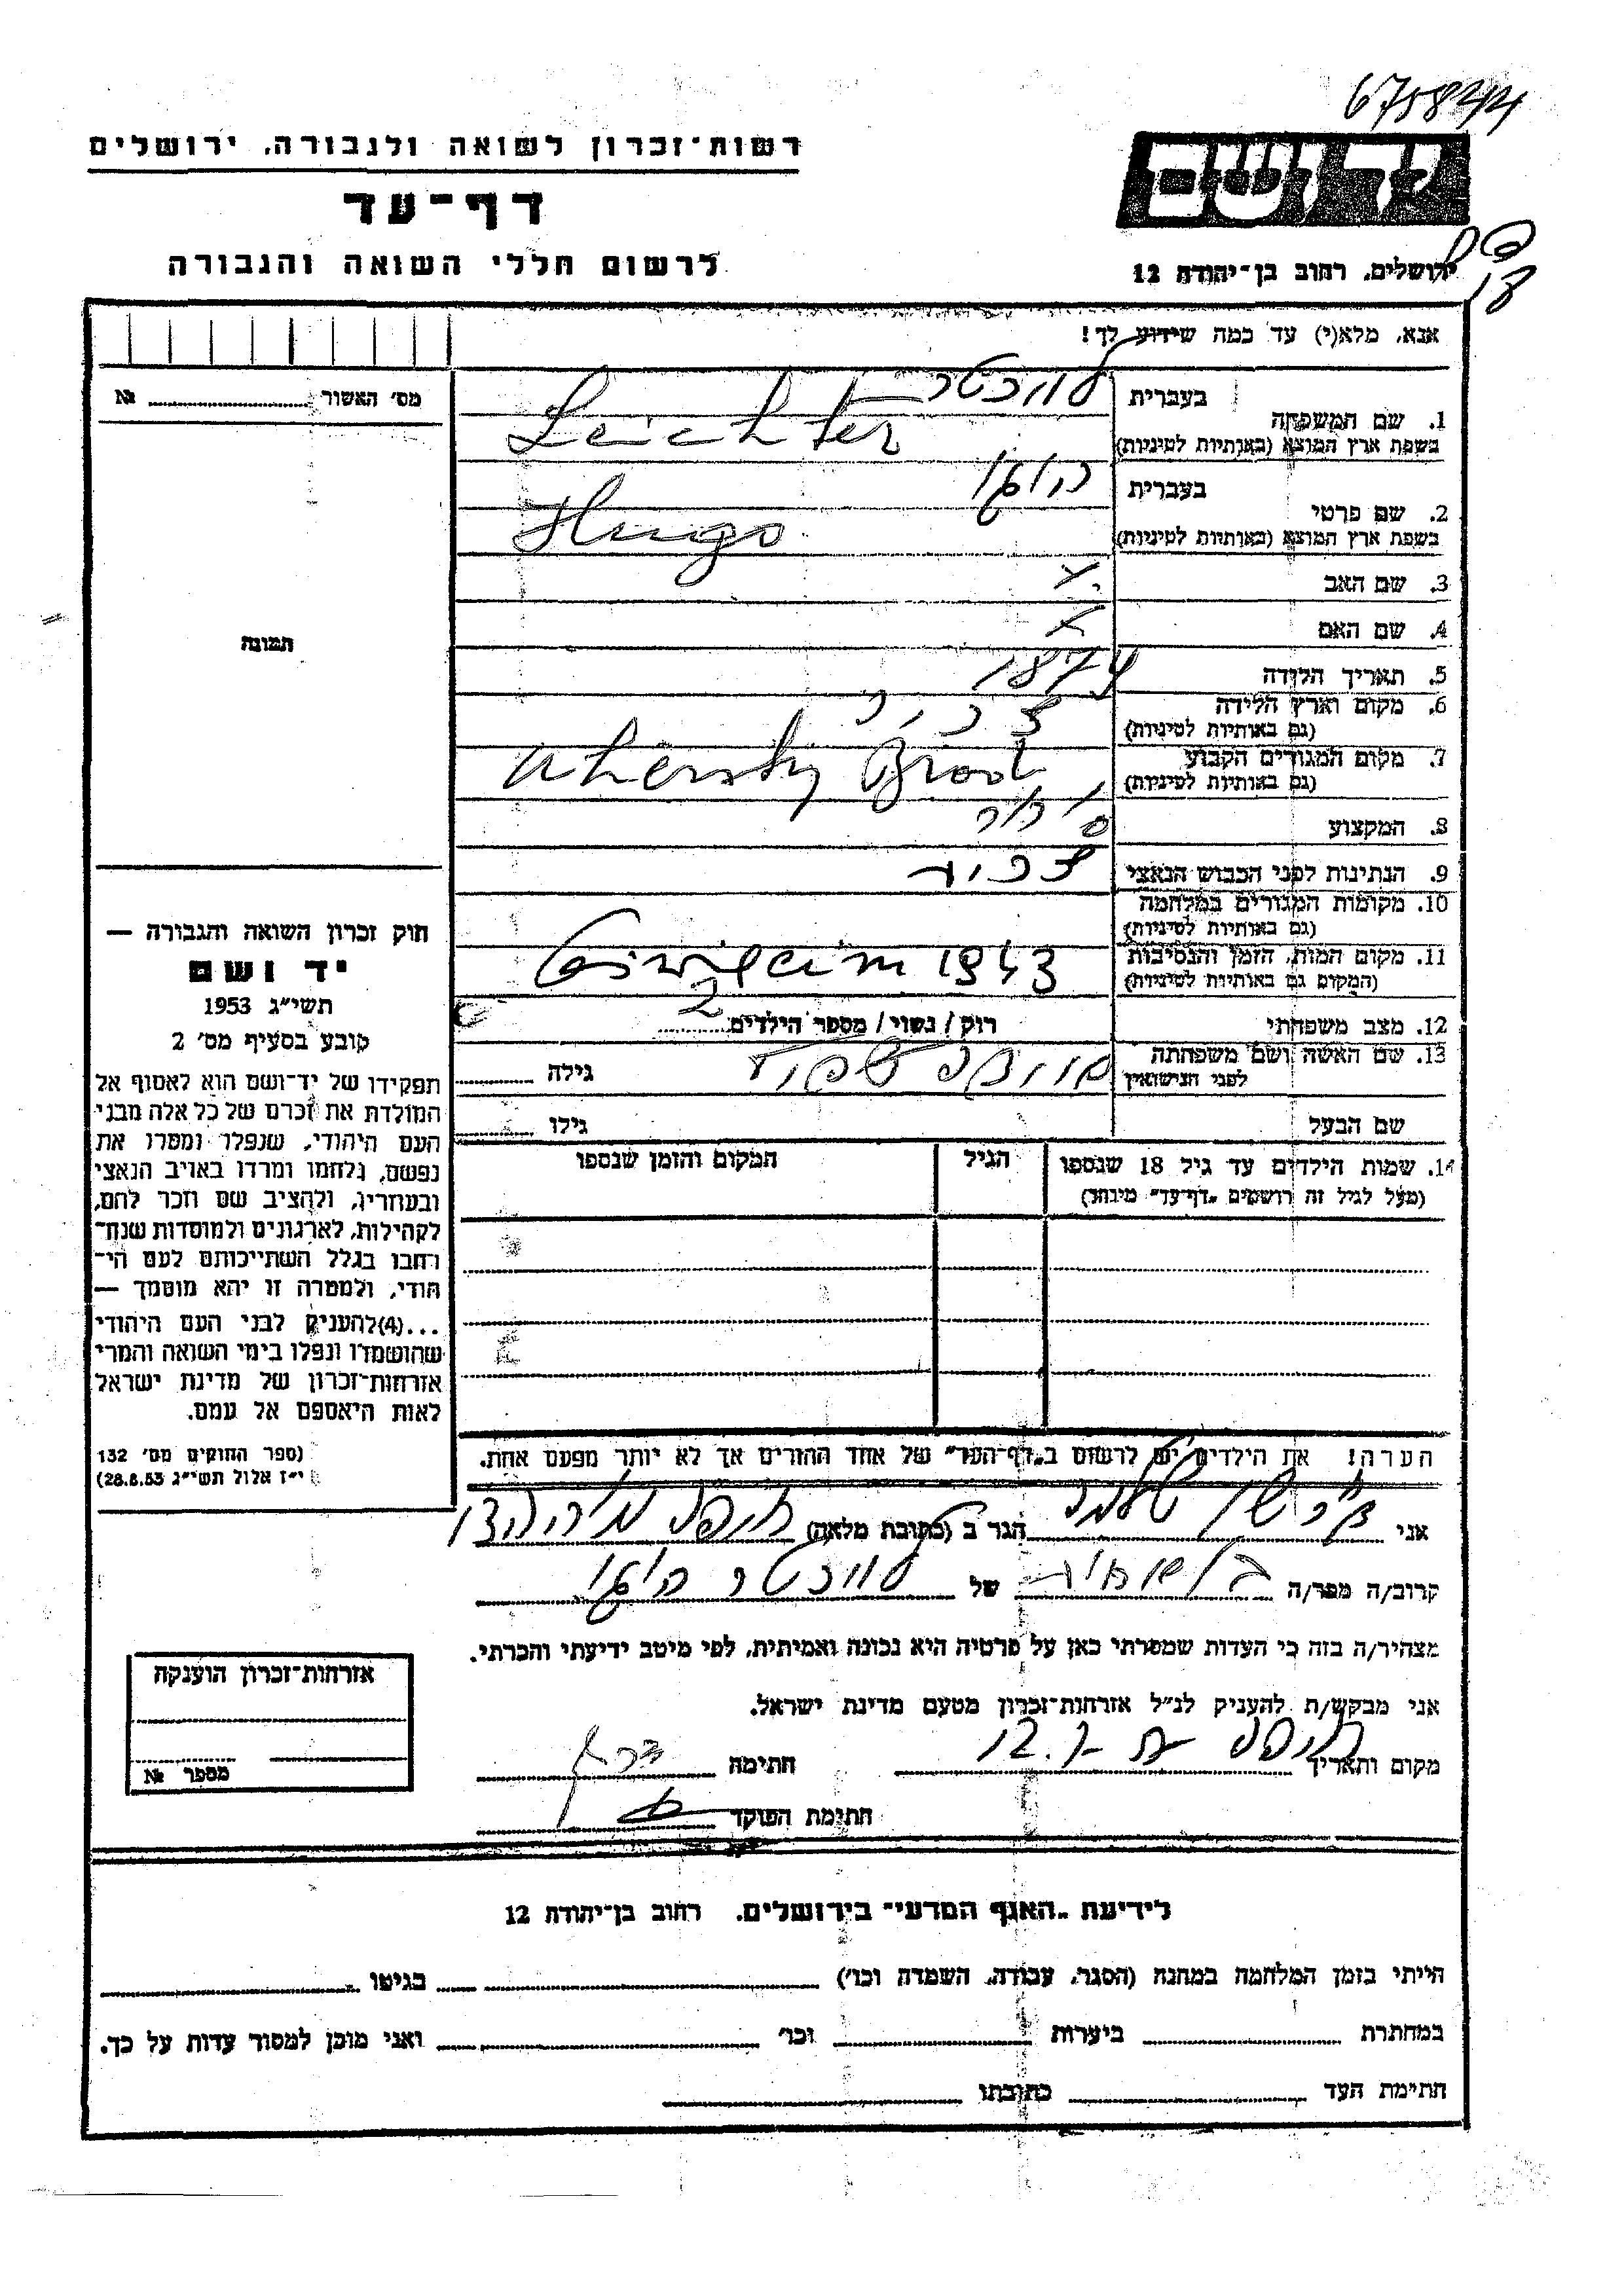 675844
רשות־זכרון לשואה ולגבורה, ירושלים
יד ושם
דף־עד
לרשום חללי השואה והגבורה
ירושלים, רחוב בן־יהודה 12
אנא, מלא(י) עד כמה שידוע לך!
מס׳ האשור № 
1. שם המשפחה
בעברית לייכטר
בשפת ארץ המוצא (באותיות לטיניות) Leichter
2. שם פרטי
בעברית הוגו
בשפת ארץ המוצא (באותיות לטיניות) Hugo
3. שם האב
4. שם האם
5. תאריך הלידה 1874
6. מקום וארץ הלידה
(גם באותיות לטיניות)
7. מקום המגורים הקבוע
(גם באותיות לטיניות) Uhersky Brod
8. המקצוע סוחר
9. הנתינות לפני הכבוש הנאצי
10. מקומות המגורים במלחמה
(גם באותיות לטיניות)
11. מקום המות, הזמן והנסיבות
(המקום גם באותיות לטיניות) 1943
12. מצב משפחתי רוק / נשוי / מספר הילדים 2
13. שם האשה ושם משפחתה
לפני הנישואין
גילה
שם הבעל גילו
14. שמות הילדים עד גיל 18 שנספו
(מעל לגיל זה רושמים „דף־עד” מיוחד)
הגיל
המקום והזמן שנספו
הערה! את הילדים יש לרשום ב„דף־העד” של אחד ההורים אך לא יותר מפעם אחת.
תמונה
חוק זכרון השואה והגבורה —
יד ושם
תשי״ג 1953
קובע בסעיף מס׳ 2
תפקידו של יד־ושם הוא לאסוף אל
המולדת את זכרם של כל אלה מבני
העם היהודי, שנפלו ומסרו את
נפשם, נלחמו ומרדו באויב הנאצי
ובעוזריו, ולהציב שם וזכר להם,
לקהילות, לארגונים ולמוסדות שנח־
רבו בגלל השתייכותם לעם הי־
הודי, ולמטרה זו יהא מוסמך —
...(4)להעניק לבני העם היהודי
שהושמדו ונפלו בימי השואה והמרי
אזרחות־זכרון של מדינת ישראל
לאות היאספם אל עמם.
(ספר החוקים מס׳ 132
י״ז אלול תשי״ג 28.8.53)
אני הגר ב (כתובת מלאה) חיפה
קרוב/ה מכר/ה של לייכטר הוגו
מצהיר/ה בזה כי העדות שמסרתי כאן על פרטיה היא נכונה ואמיתית, לפי מיטב ידיעתי והכרתי.
אני מבקש/ת להעניק לנ״ל אזרחות־זכרון מטעם מדינת ישראל.
מקום ותאריך חיפה חתימה
חתימת הפוקד
אזרחות־זכרון הוענקה
מספר №
לידיעת „האגף המדעי” בירושלים, רחוב בן־יהודה 12
הייתי בזמן המלחמה במחנה (הסגר, עבודה, השמדה וכו׳) בגיטו
במחתרת ביערות וכו׳ ואני מוכן למסור עדות על כך.
חתימת העד כתובתו